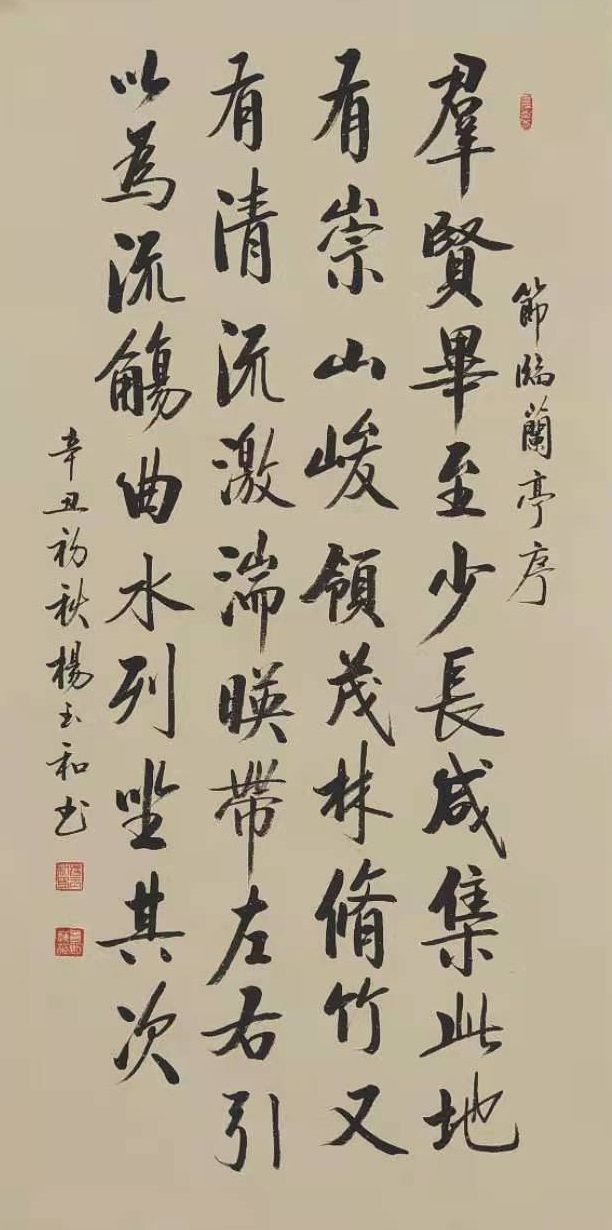 節臨蘭亭序
羣賢畢至少長咸集此地
有崇山峻領茂林脩竹又
有清流激湍暎帶左右引
以為流觴曲水列坐其次
辛丑初秋楊玉和书